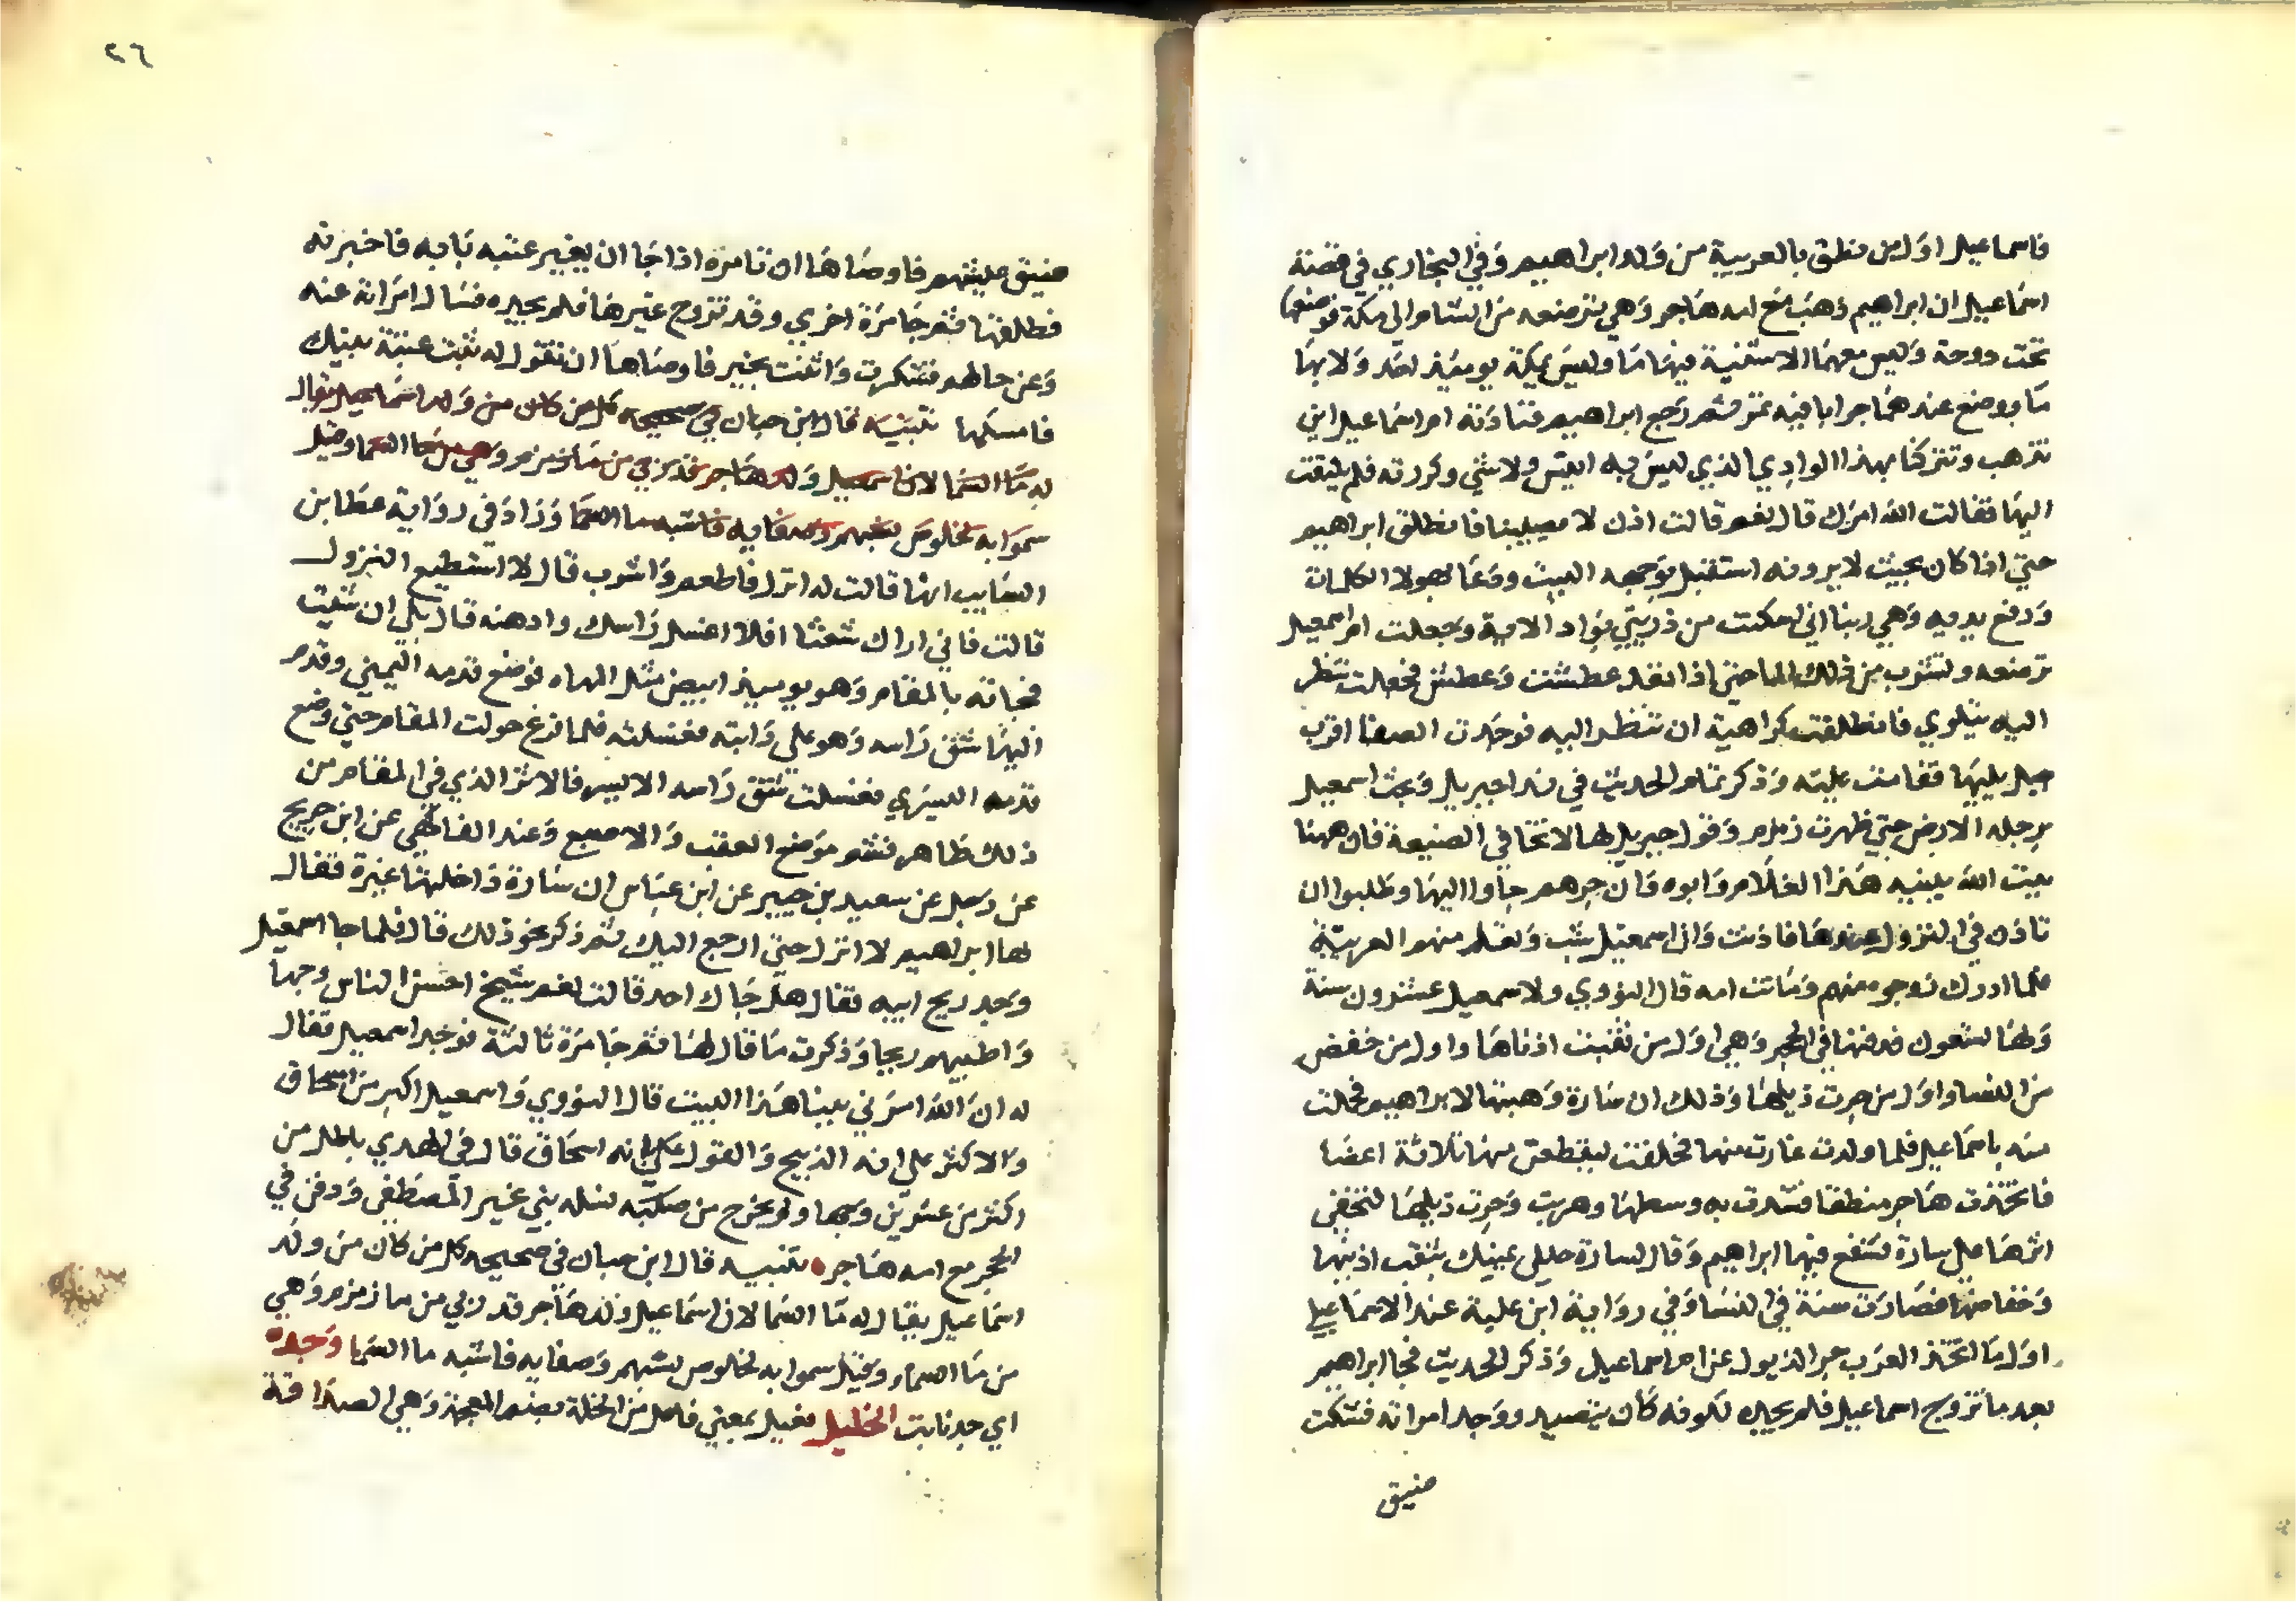 فاسماعيل اول من نطق بالعربية من ولد ابراهيم وفي البخاري في قصة
اسماعيل ان ابراهيم ذهب مع امه هاجر وهي ترضعه من الشام الي مكة فوضعها
تحت دوحة وليس معهما الا شنة فيها ما وليس بمكة يوميذ احد ولا بها
ما ووضع عند هما جرابا فيه تمر ثم رجع ابراهيم فنادته ام اسماعيل اين
تذهب وتتركنا بهذا الوادي الذي ليس به انيس ولا شي وكررته فلم يلتفت
اليها فقالت الله امرك قال نعم قالت اذن لا يضيعنا فانطلق ابراهيم
حتي اذا كان بحيث لا يرونه استقبل بوجهه البيت ودعا بهولا الكلمات
ورفع يديه وهي ربنا اني اسكنت من ذريتي بواد الاية وجعلت ام اسمعيل
ترضعه وتشرب من ذلك الما حتي اذا نفد عطشت وعطش فجعلت تنظر
اليه يتلوي فانطلقت كراهية ان تنظر اليه فوجدت الصفا اقرب
جبل يليها فقامت عليه وذكر تمام الحديث في ندا جبريل وبحث اسمعيل
برجله الارض حتي ظهرت زمزم وقول جبريل لها لا تخافي الضيعة فان ههنا
بيت الله يبنيه هذا الغلام وابوه وان جرهم جاوا اليها وطلبوا ان
تاذن في النزول عندها فاذنت وان اسمعيل شب وتعلم منهم العربية
فلما ادرك زوجوه منهم وماتت امه قال النووي ولاسمعيل عشرون سنة
ولها تسعون فدفنها في الحجر وهي اول من ثقبت اذناها واول من خفض
من النسا واول من جرت ذيلها وذلك ان سارة وهبتها لابراهيم فحملت
منه باسماعيل فلما ولدت غارت منها فحلفت ليقطعن منها ثلاثة اعضا
فاتخذت هاجر منطقا فشدت به وسطها وهربت وجرت ذيلها لتخفي
اثرها علي سارة فشفع فيها ابراهيم وقال لسارة حللي يمينك بثقب اذنيها
وخفاضها فصارت سنة في النسا وفي رواية ابن علية عند الاسماعيلي
اول ما اتخذ العرب جر الذيول عن ام اسماعيل وذكر الحديث فجا ابراهيم
بعد ما تزوج اسماعيل فلم يجده لكونه كان يتصيد ووجد امراته فشكت
ضيق
٢٦
ضيق عيشهم فاوصاها ان تامره اذا جا ان يغير عتبه بابه فاخبرته
فطلقها ثم جا مرة اخري وقد تزوج غيرها فلم يجده فسال امراته عنه
وعن حالهم فشكرت واثنت بخير فاوصاها ان تقول له ثبت عتبة بيتك
فامسكها تنبيه قال ابن حبان في صحيحه كل من كان من ولد اسماعيل يقال
له ما السما لان اسمعيل ولد هاجر قد ربي من ما زمزم وهي من ما السما وقيل
سموا به لخلوص نسبهم وصفايه فاشبه ما السما وزاد في رواية عطا بن
السايب انها قالت له انزل فاطعم واشرب قال لا استطيع النزول
قالت فاني اراك شعثا افلا اغسل راسك وادهنه قال بلي ان شيت
فجاته بالمقام وهو يوميذ ابيض مثل المهاه فوضع قدمه اليمني وقدم
اليها شق راسه وهو علي دابته فغسلته فلما فرغ حولت المقام حتي وضع
قدمه اليسري فغسلت شق راسه الايسر فالاثر الذي في المقام من
ذلك ظاهر فيه موضع العقب والاصبع وعند الفاكهي عن ابن جريج
عن رجل عن سعيد بن جبير عن ابن عباس ان سارة داخلتها غيرة فقال
لها ابراهيم لا انزل حتي ارجع اليك ثم ذكر نحو ذلك قال فلما جا اسمعيل
وجد ريح ابيه فقال هل جاك احد قالت نعم شيخ احسن الناس وجها
واطيبهم ريحا وذكرت ما قال لها ثم جا مرة ثالثة فوجد اسمعيل فقال
له ان الله امرني ببنا هذا البيت قال النووي واسمعيل اكبر من اسحاق
والاكثر علي انه الذبيح والقول بانه اسحاق قال في الهدي باطل من
اكثر من عشرين وجها ولم يخرج من صلبه لنله نبي غير المصطفي ودفن في
الحجر مع امه هاجر ه تنبيه قال ابن حبان في صحيحه كل من كان من ولد
اسماعيل يقال له ما السما لان اسماعيل ولد هاجر قد ربي من ما زمزم وهي
من ما السماء وقيل سموا به لخلوص نسبهم وصفايه فاشبه ما السما وجده
اي جدنا بت الخليل فعيل بمعني فاعل من الخلة بضم المعجمة وهي الصداقة